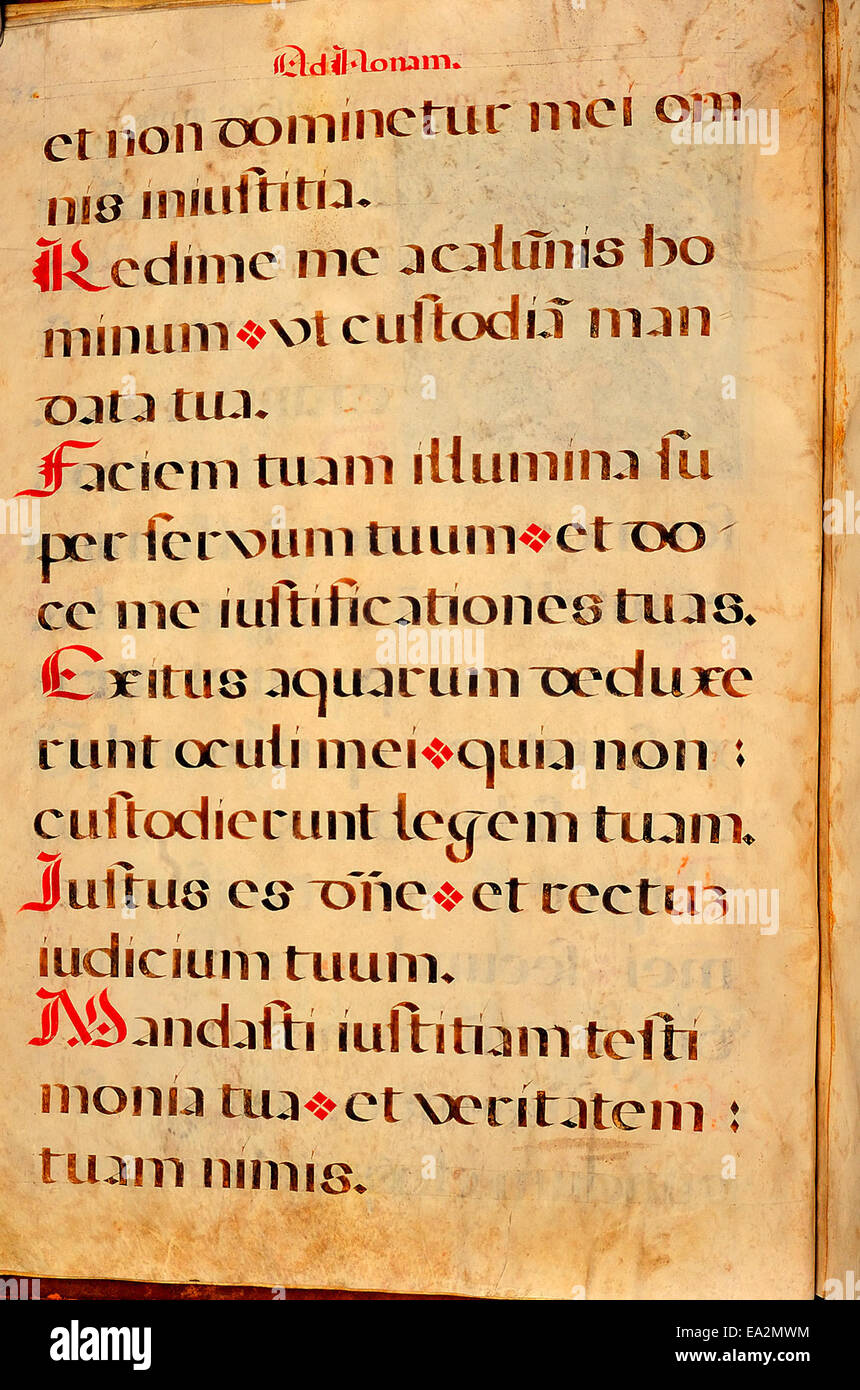 Ad Nonam.
et non dominetur mei om
nis iniuſtitia.
Redime me a calũnis ho
minum ut cuſtodiã man
data tua.
Faciem tuam illumina ſu
per ſervum tuum et do
ce me iuſtificationes tuas.
Exitus aquarum deduxe
runt oculi mei quia non :
cuſtodierunt legem tuam.
Iuſtus es dñe et rectus
iudicium tuum.
Mandaſti iuſtitiam teſti
monia tua et veritatem :
tuam nimis.
alamy
Image ID: EA2MWM
www.alamy.com